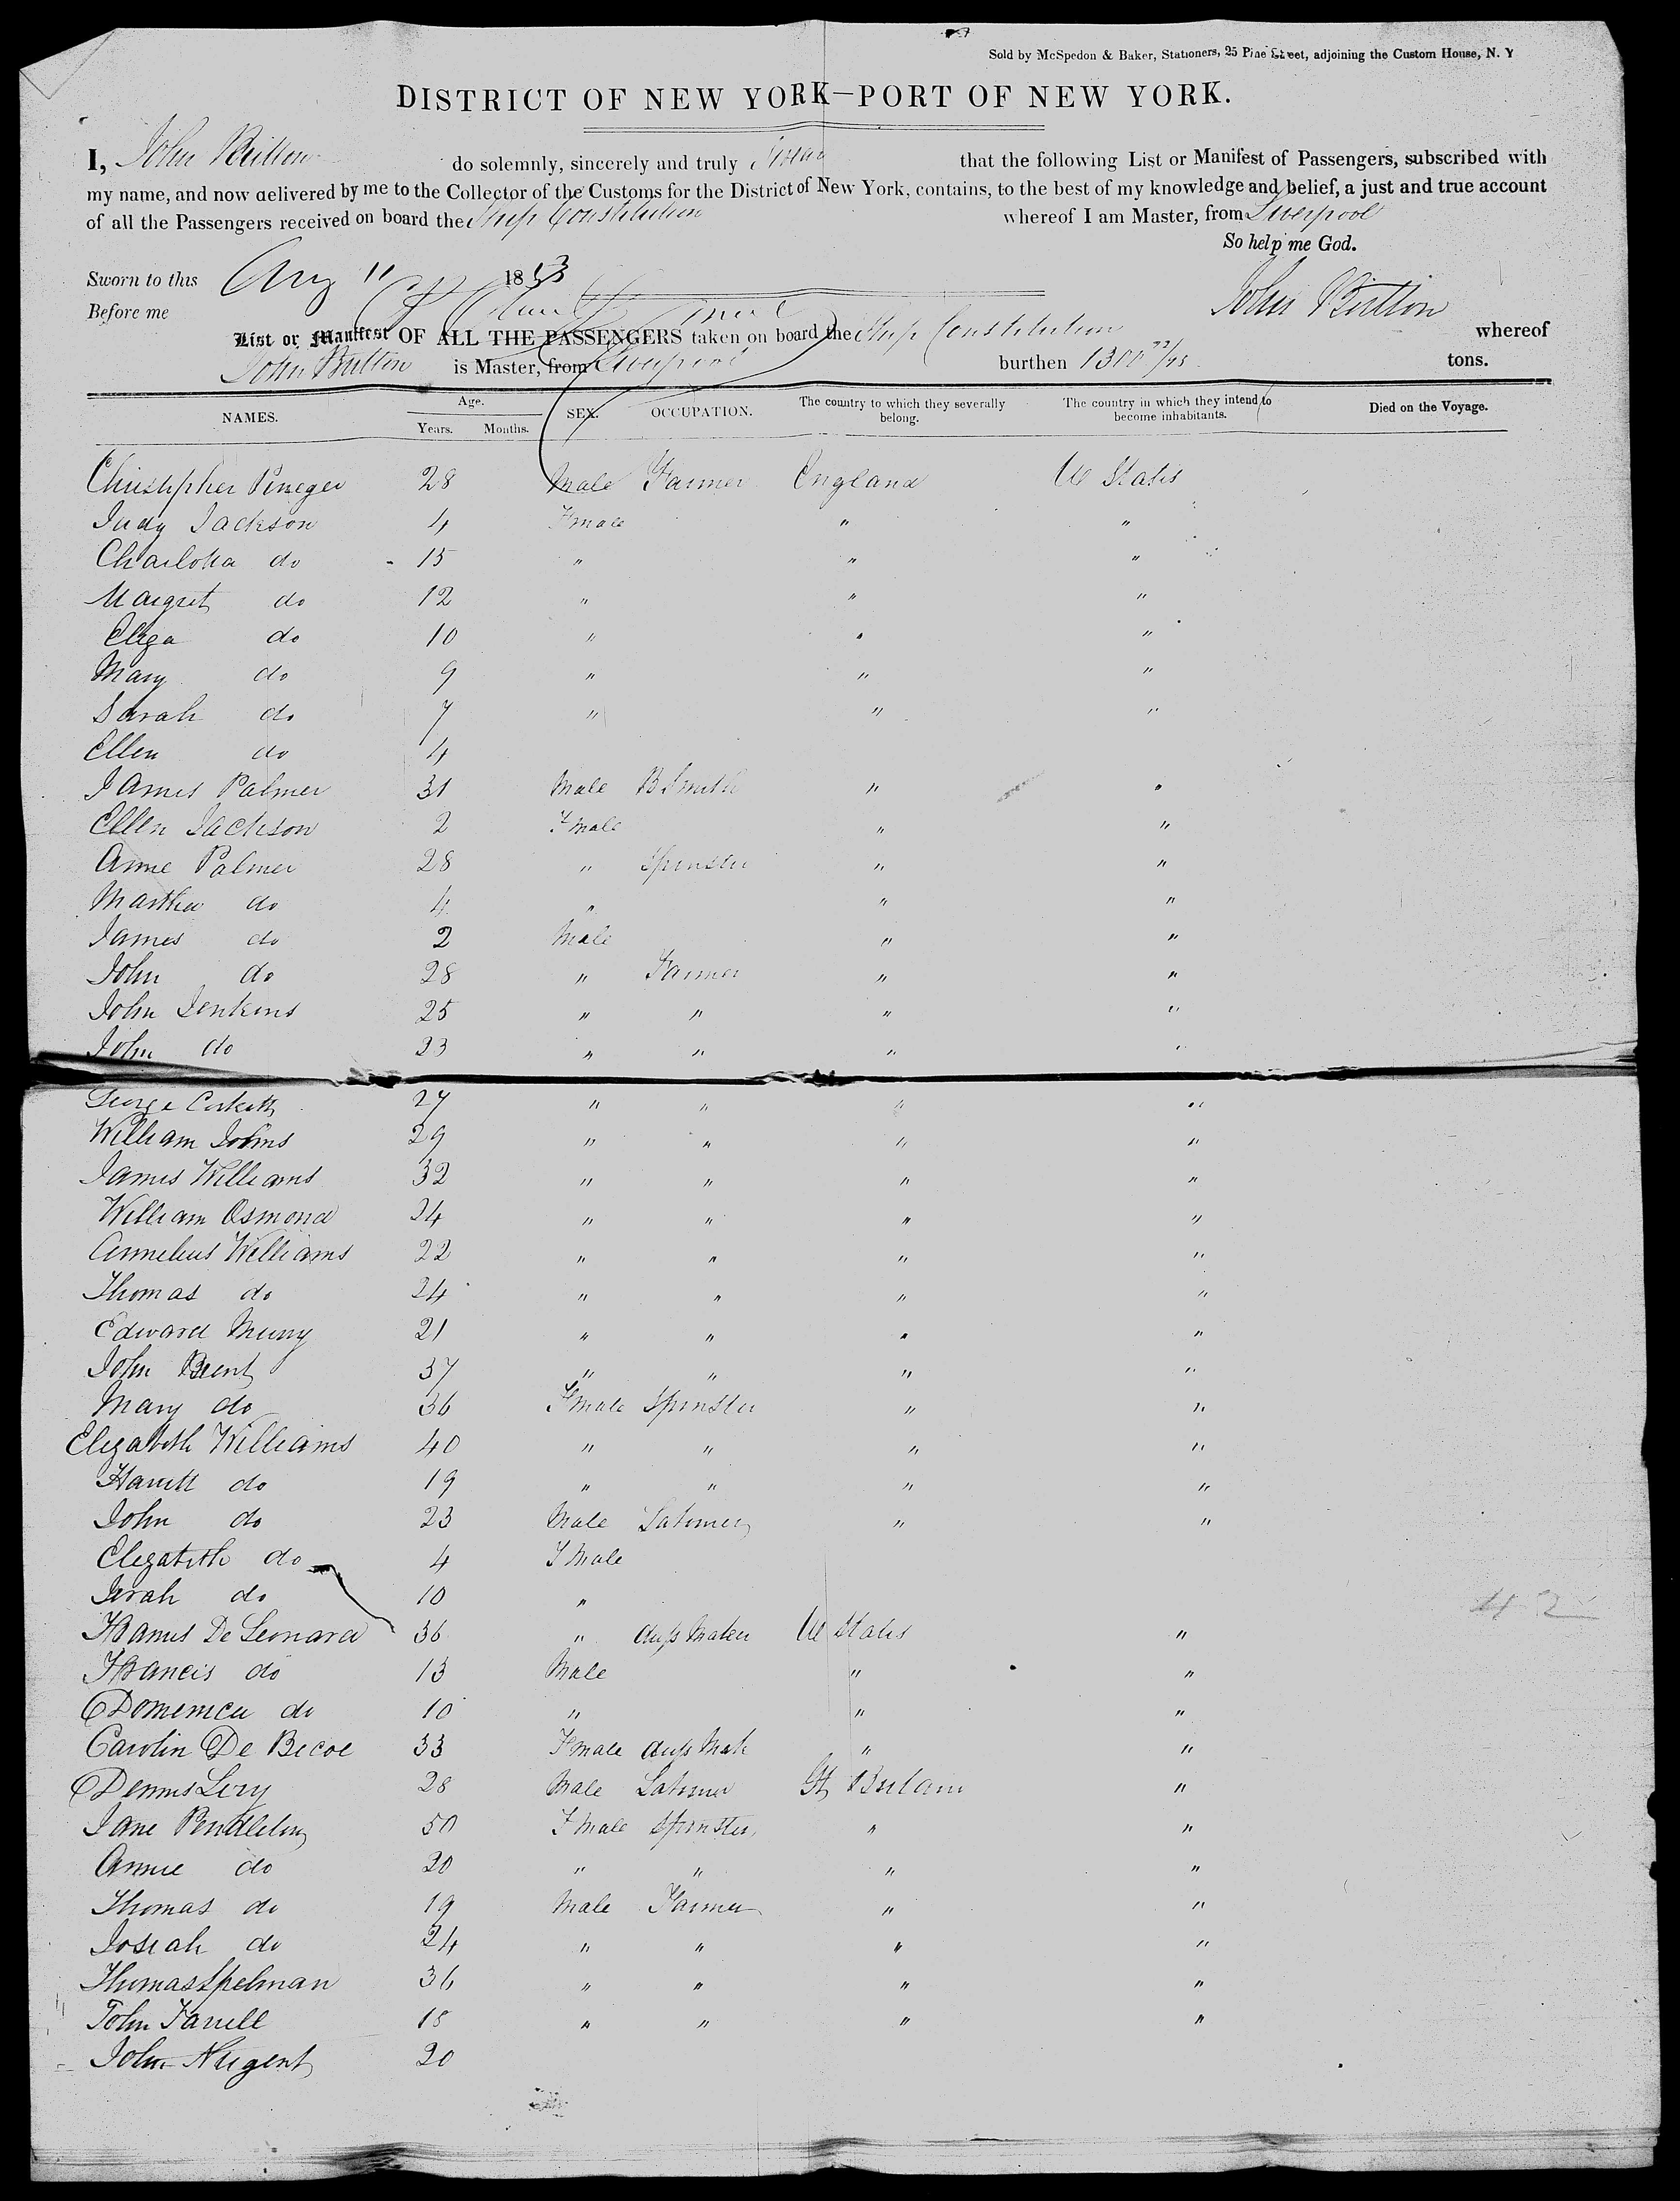 Sold by McSpedon & Baker, Stationers, 25 Pine Street, adjoining the Custom House, N. Y
DISTRICT OF NEW YORK—PORT OF NEW YORK.
I, John Britton do solemnly, sincerely and truly Swear that the following List or Manifest of Passengers, subscribed with
my name, and now delivered by me to the Collector of the Customs for the District of New York, contains, to the best of my knowledge and belief, a just and true account
of all the Passengers received on board the Ship Constitution whereof I am Master, from Liverpool
So help me God.
Sworn to this Aug 11 1853
John Britton
Before me
List or Manifest OF ALL THE PASSENGERS taken on board the Ship Constitution whereof
John Britton is Master, from Liverpool burthen 1300 tons.
NAMES. Age. Years. Months. SEX. OCCUPATION. The country to which they severally belong. The country in which they intend to become inhabitants. Died on the Voyage.
Christopher 28 Male Farmer England U States
Judy Jackson 4 Fmale " "
Charlotta do 15 " " "
Margret do 12 " " "
Eliza do 10 " " "
Mary do 9 " " "
Sarah do 7 " " "
Ellen do 4
James Palmer 31 Male B Smith " "
Ellen Jackson 2 Fmale " "
Anne Palmer 28 " Spinster " "
Martha do 4 " " "
James do 2 Male " "
John do 28 " Farmer " "
John Jenkins 25 " " " "
John do 23 " " " "
George 27 " " " "
William Johns 29 " " " "
James Williams 32 " " " "
William Osmond 24 " " " "
Williams 22 " " " "
Thomas do 24 " " " "
Edward 21 " " " "
John Brent 37 " " " "
Mary do 36 Fmale Spinster " "
Elizabeth Williams 40 " " " "
Harriett do 19 " " " "
John do 23 Male " "
Elizabeth do 4 Fmale
Sarah do 10 "
De Leonard 36 " dress Maker U States "
Francis do 13 Male " "
Domenica do 10 " " "
Carolin De Becoe 33 Fmale dress Mak " "
Dennis 28 Male Gt "
Jane Pendleton 50 Fmale Spinster " "
Annie do 20 " " " "
Thomas do 19 Male Farmer " "
Josiah do 24 " " " "
Thomas Spelman 36 " " " "
John Farrell 18 " " " "
John Nugent 20
42